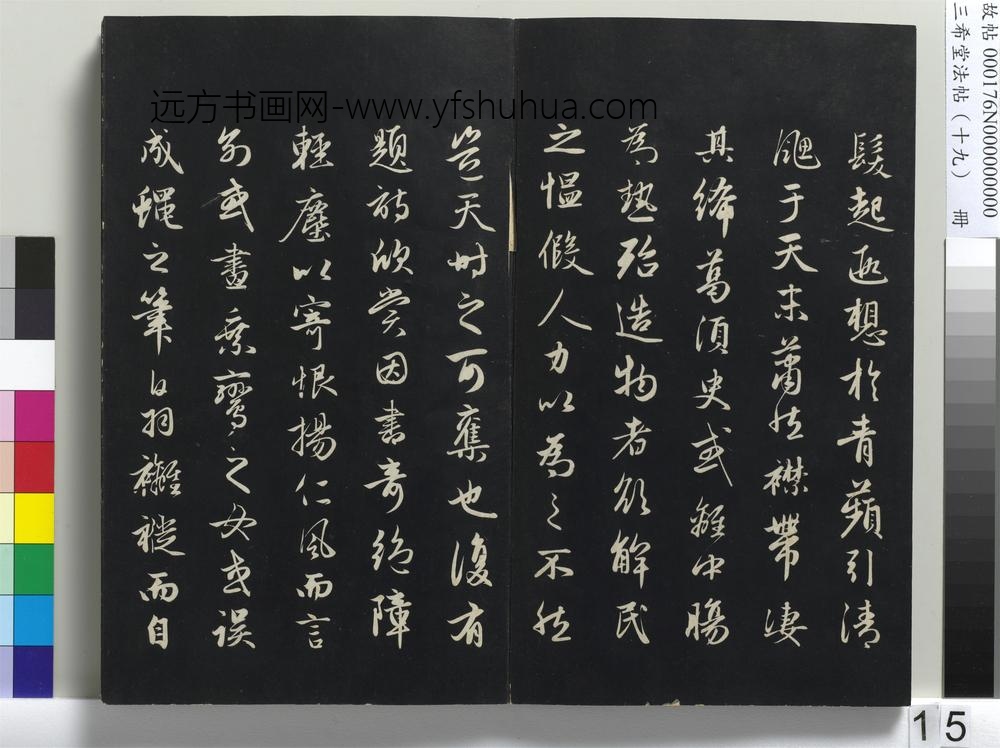 髮起遐想於青蘋引清
飔于天末蕭然襟帶凄
其絺葛須臾或雖中腸
為熱殆造物者欲解民
之愠假人力以為之不然
豈天時之可奪也復有
題詩欣賞因書奇絶障
輕塵以寄恨揚仁風而言
別或畫乘鸞之女或誤
成蠅之筆白羽襳褷而自
远方书画网-www.yfshuhua.com
故帖 000176N000000000
三希堂法帖（十九） 冊
15